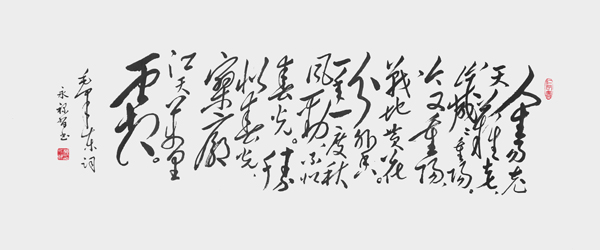 人生易老
天难老，
岁岁重阳。
今又重阳，
战地黄花
分外香。
一年一度秋
风劲，不似
春光。胜
似春光，
寥廓
江天万里
霜。
毛泽东词
永 书